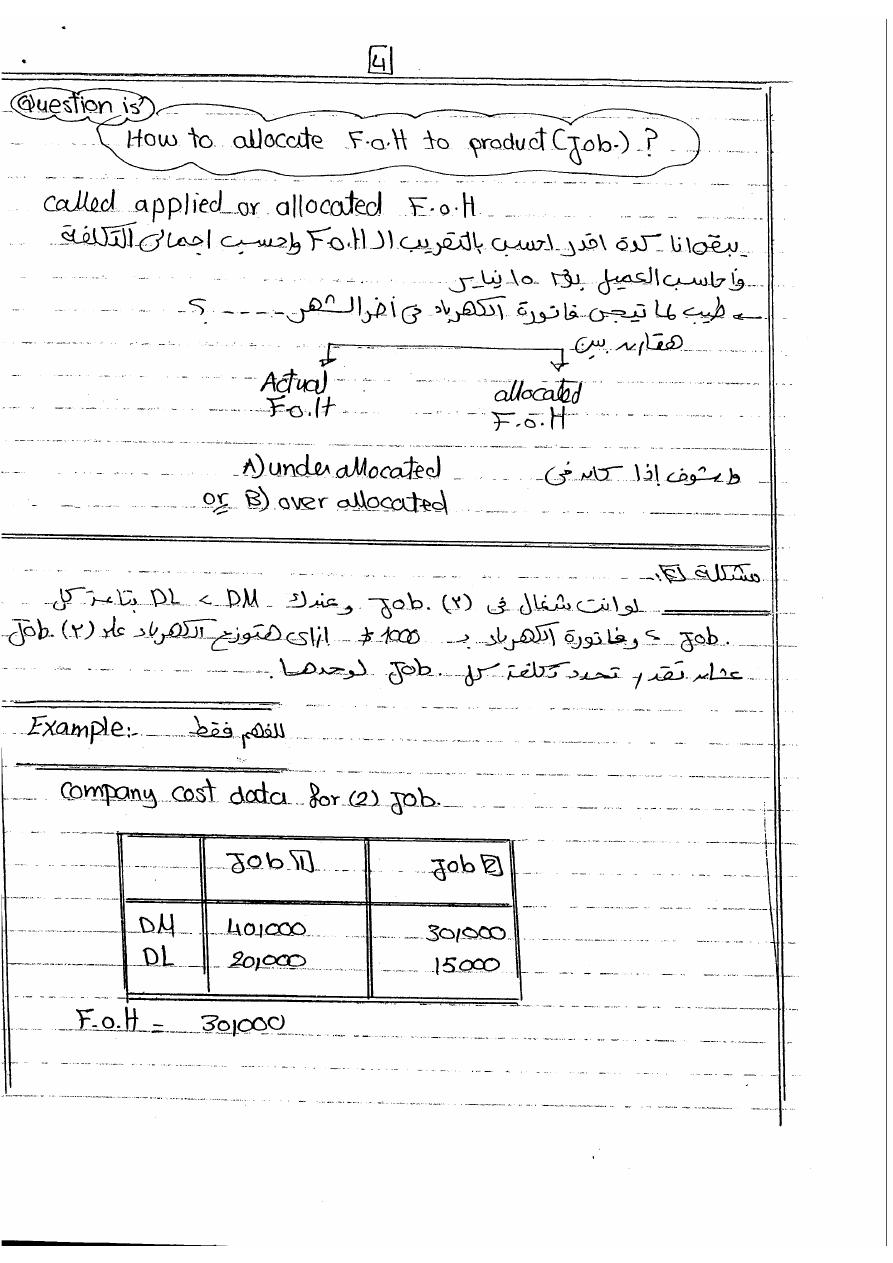 4
Question is
How to allocate F.o.H to product (Job.) ?
called applied or allocated F.o.H
يبقى انا كدة اقدر احسب بالتقريب الـ F.o.H واحسب اجمالى التكلفة
وأحاسب العميل يوم ١٥ يناير
← طيب لما تيجى فاتورة الكهرباء فى أخر الشهر - - - - ؟
هقارن بين
Actual allocated
F.o.H F.o.H
واشوف إذا كان فى A) under allocated
or B) over allocated
مشكلة 2:-
لو انت شغال فى (٢) Job. وعندك DM > DL بتاعة كل
Job. وفاتورة الكهرباء بـ 1000 $ ازاى هتوزع الكهرباء على (٢) Job.
عشان تقدر تحدد تكلفة كل Job. لوحدها.
Example:- للفهم فقط
Company cost data for (2) Job.
Job 1 Job 2
DM 40,000 30,000
DL 20,000 15000
F.o.H = 30,000